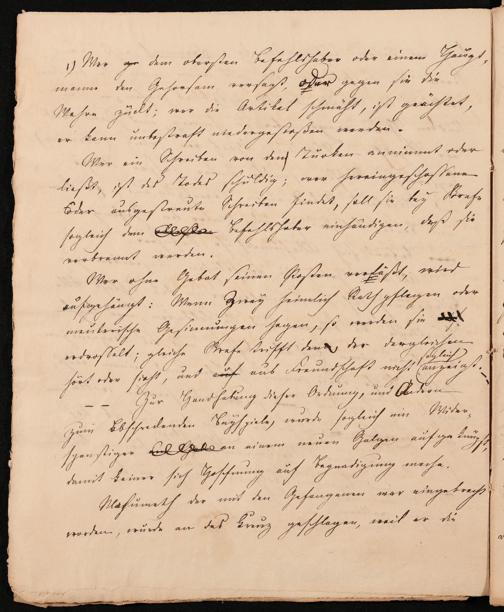 1) Wer dem obersten Befehlshaber oder einem Haupt-
manne den Gehorsam versagt, oder gegen sie die
Wehre zückt; wer die Artikel schmäht, ist geächtet,
er kann unbestraft niedergestoßen werden.
Wer ein Schreiben von den Türken annimmt oder
ließt, ist des Todes schuldig; wer hereingeschossene
oder ausgestreute Schreiben findet, soll sie bey Strafe
sogleich dem Befehlshaber einhändigen, daß sie
verbrannt werden.
Wer ohne Gebot seinen Posten verläßt, wird
aufgehängt: Wenn Zwey heimlich Rath pflegen oder
meuterische Gesinnungen hegen, so werden sie
erdrosselt; gleiche Strafe trifft den, der dergleichen
hört oder sieht, und aus Freundschaft nicht sogleich anzeigt.
Zur Handhabung dieser Ordnung, und Andern
zum abschreckenden Beyspiele, wurde sogleich ein Wider-
spenstiger an einem neuen Galgen aufgeknüpft,
damit keiner sich Hoffnung auf Begnadigung mache.
der mit den Gefangenen war eingebracht
worden, wurde an das Kreuz geschlagen, weil er die